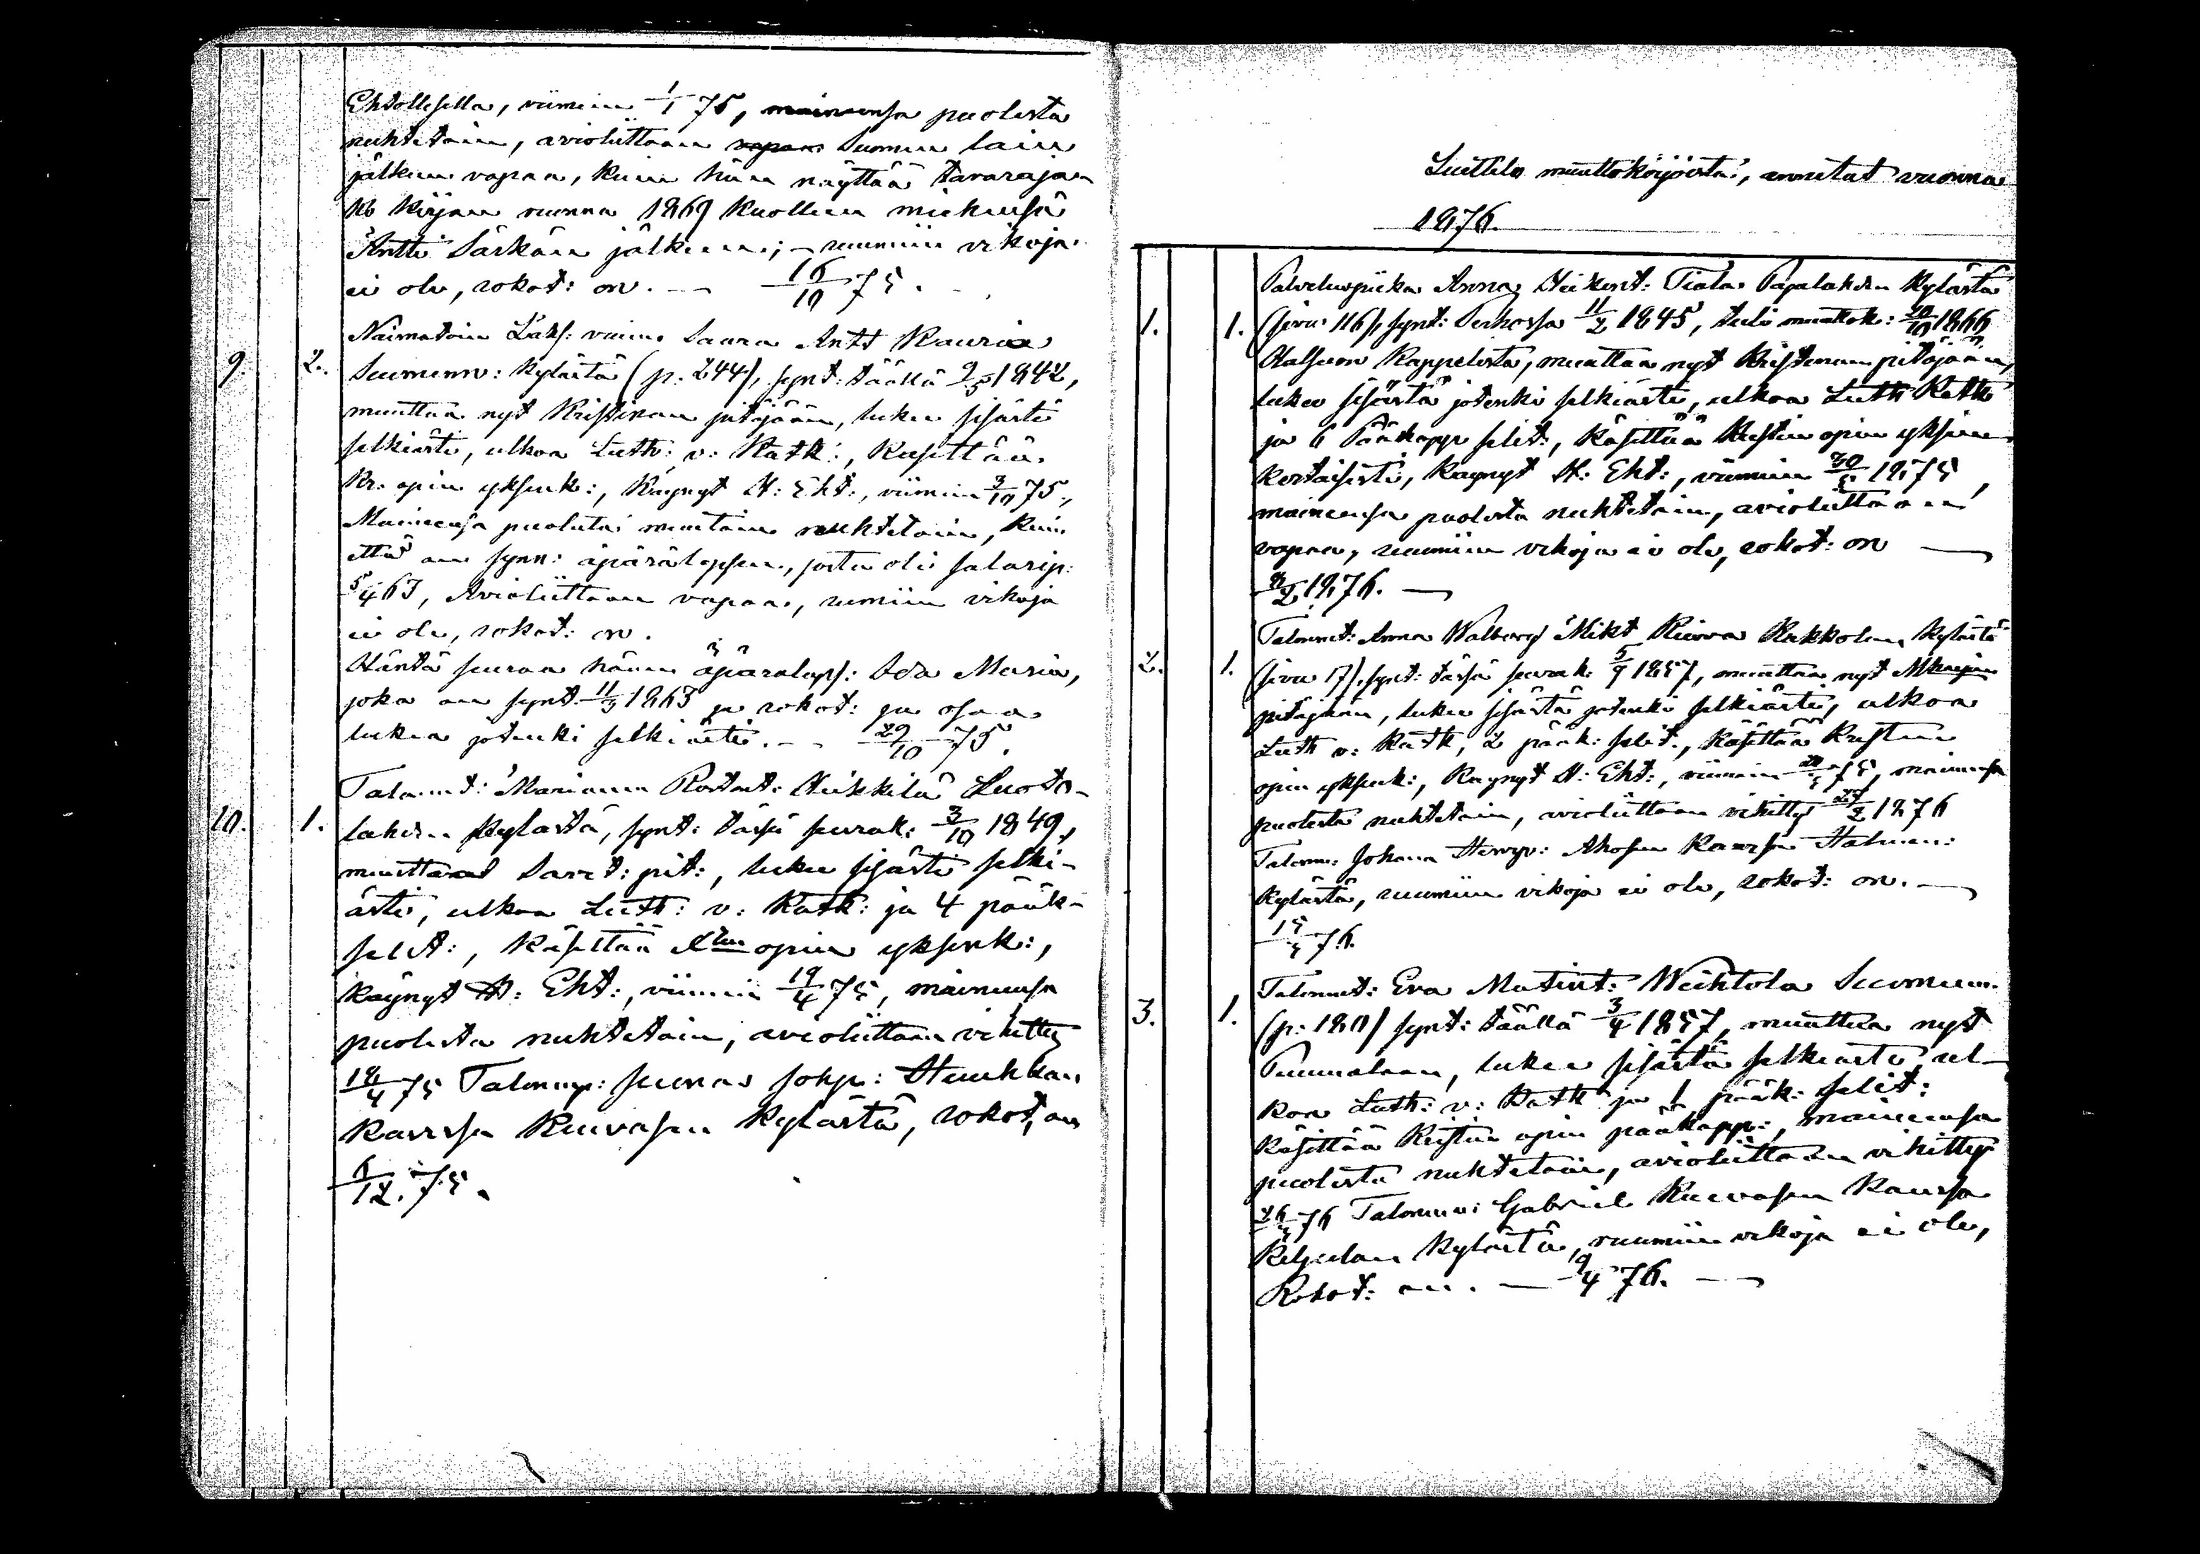 Ehtollisella, viimein 1/1 75, mainensa puolesta
nuhtetoin, avioliittoon vapaa Suomen lain
jälkeen vapaa, kuin hän näyttää tavarajaon
kirjan vuonna 1869 kuolleen miehensä
Antti Särkän jälkeen; ruumiin vikoja
ei ole, rokot: on. — 16/10 75.
Naimatoin Laks: vaimo Saara Antt Kauria
9. 2. Suomenn: kylästä (p. 244), synt: täällä 9/5 1842,
muuttaa nyt Kristinan pitäjään, lukee sisästä
selkiästi, ulkoa Luth: v: Katk:, Käsittää
Kr. opin yksink:, Käynyt H: Eht:, viimein 3/10 75,
Maineensa puolesta muutoin nuhtetoin, kuin
että on synn: äpärälapsen, josta oli salarip:
5/4 63, Avioliittoon vapaa, rumiin vikoja
ei ole, rokot: on.
Häntä seuraa hänen äpäralaps: Ida Maria,
joka on synt 11/3 1863 ja rokot: ja osaa
lukea jotenki selkiästi. — 29/10 75.
Talonst: Marianna Heikkilä Luoto-
10. 1. lahden kylästä, synt: tässä seurak: 3/10 1849,
muuttaa Savit: pit:, lukee sisästä selki-
ästi, ulkoa Luth: v: Katk: ja 4 pääk:
selit:, käsittää opin yksink:,
käynyt H: Eht:, viimein 19/4 75, maineensa
puolesta nuhtetoin, avioliittoon vihitty
18/4 75 Talonp: Joonas Johp:
kanssa Kuivasen kylästä, rokot, on
6/12. 75.
Luettelo muuttokirjoista, annetut vuonna
1876.
Palveluspiika Anna Heikint: Tiala Papalahden kylästä
1. 1. (sivu 116), synt: Perhossa 11/2 1845, tuli muuttok: 20/10 1866
Halsuan kappelista, muuttaa nyt Kristinan pitäjään,
lukee sisästä jotenki selkiästi, ulkoa Luth Katk
ja 6 Pääkapp selit:, käsittää Kristin opin yksin-
kertaisesti, käynyt H: Eht:, viimein 30/5 1875,
maineensa puolesta nuhtetoin, avioliittoon
vapaa, ruumiin vikoja ei ole, rokot: on —
8/2 1876. —
Talonst: Anna Walborg Mikt Kiuru Kukkolan kylästä
2. 1. (sivu 17), synt: tässä seurak: 5/9 1857, muuttaa nyt
pitäjään, lukee sisästä jotenki selkiästi, ulkoa
Luth v: Katk, 2 pääk: selit., käsittää Kristin
opin yksink:, käynyt H: Eht:, viimein 75, maineensa
puolesta nuhtetoin, avioliittoon vihitty 27/2 1876
Talonp: Johana Ahosen kanssa
kylästä, ruumiin vikoja ei ole, rokot: on. —
15/3 76.
Talonst: Eva Matint: Weihtola Suomenn:
3. 1. (p: 180) synt: täällä 3/4 1857, muuttaa nyt
Puumalaan, lukee sisästä selkiästi, ul-
koa Luth: v: Katk ja 1 pääk: selit:
käsittää Kristin opin pääkapp:, maineensa
puolesta nuhtetoin, avioliittoon vihitty
26/3 76 Talonp: Gabriel Kuivasen kanssa
kylästä, ruumiin vikoja ei ole,
Rokot: on. — 9/4 76. —